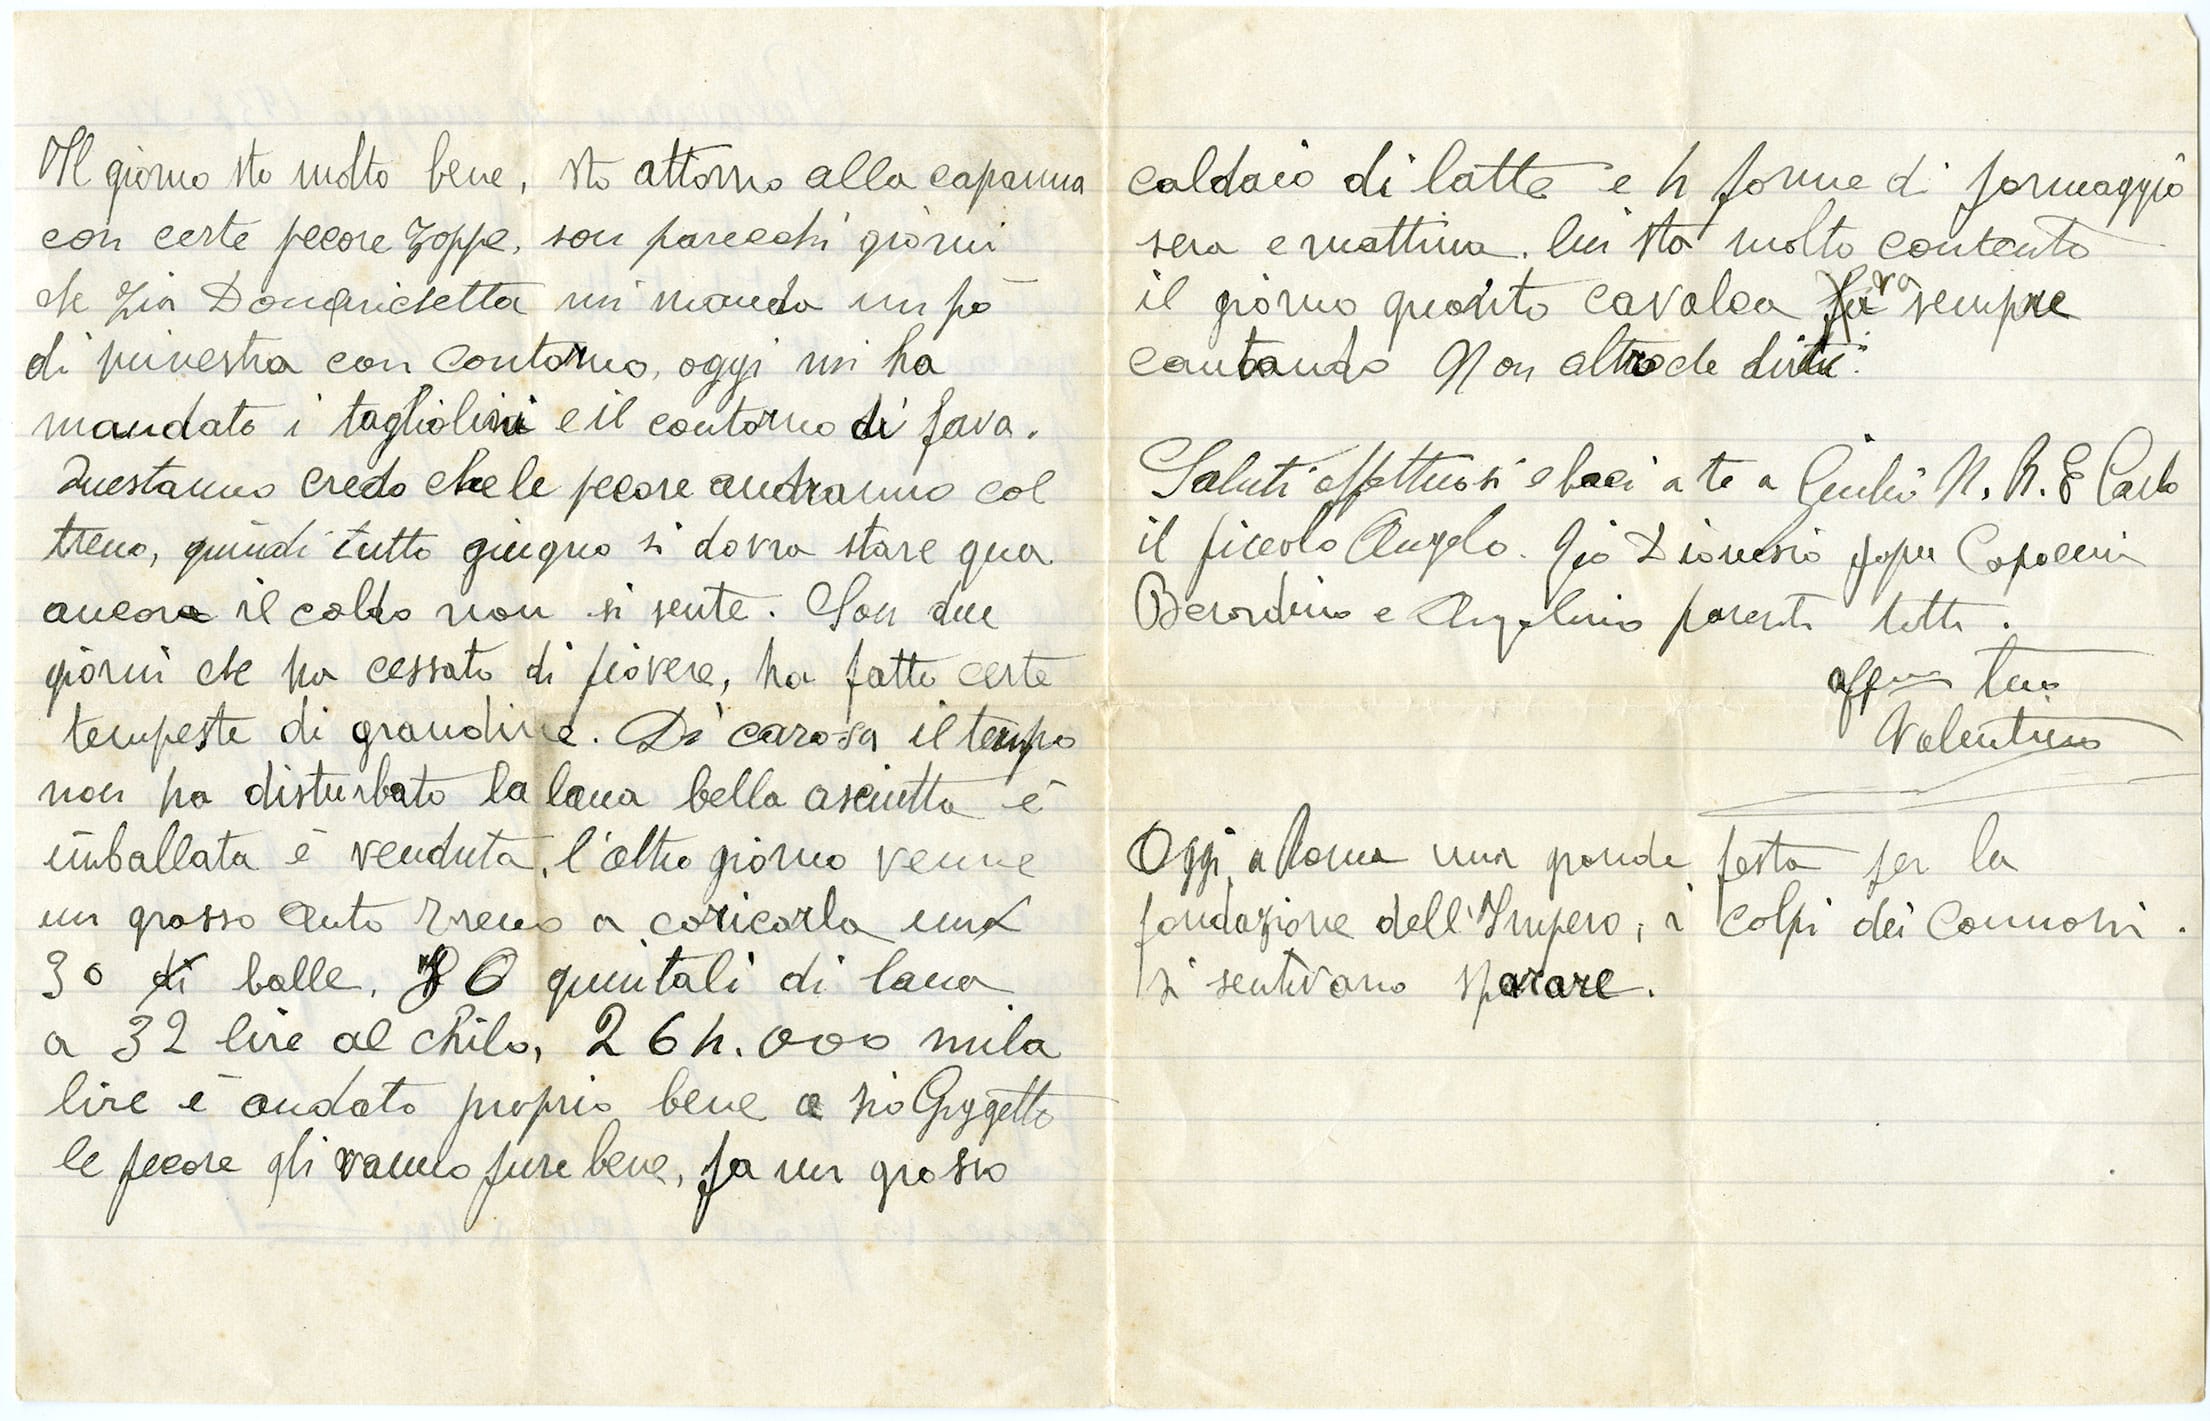 Il giorno sto molto bene, sto attorno alla capanna
con certe pecore zoppe, son parecchi giorni
che Zia Domenichetta mi manda un pò
di minestra con contorno, oggi mi ha
mandato i tagliolini e il contorno di fava.
Questanno credo che le pecore andranno col
treno, quindi tutto giugno si dovra stare qua
ancora il caldo non si sente. Son due
giorni che ha cessato di piovere, ha fatto certe
tempeste di grandine. Di carosa il tempo
non ha disturbato la lana bella asciutta è
imballata è venduta, l'altro giorno venne
un grosso auto treno a caricarla
30 balle, 80 quintali di lana
a 32 lire al chilo, 264.000 mila
lire è andato proprio bene a zio Gigetto
le pecore gli vanno pure bene, fa un grosso
caldaio di latte e 4 forme di formaggio
sera e mattina. lui sta molto contento
il giorno quanto cavalca va sempre
cantando Non altro che dirti.
Saluti affettuosi e baci a te a Giulio N. R. E Carlo
il piccolo Angelo. Zio Dionesio
Berardino e Angelino parenti tutti.
affmo tuo
Valentino
Oggi a Roma una grande festa per la
fondazione dell'Impero, i colpi dei Cannoni.
si sentivano sparare.